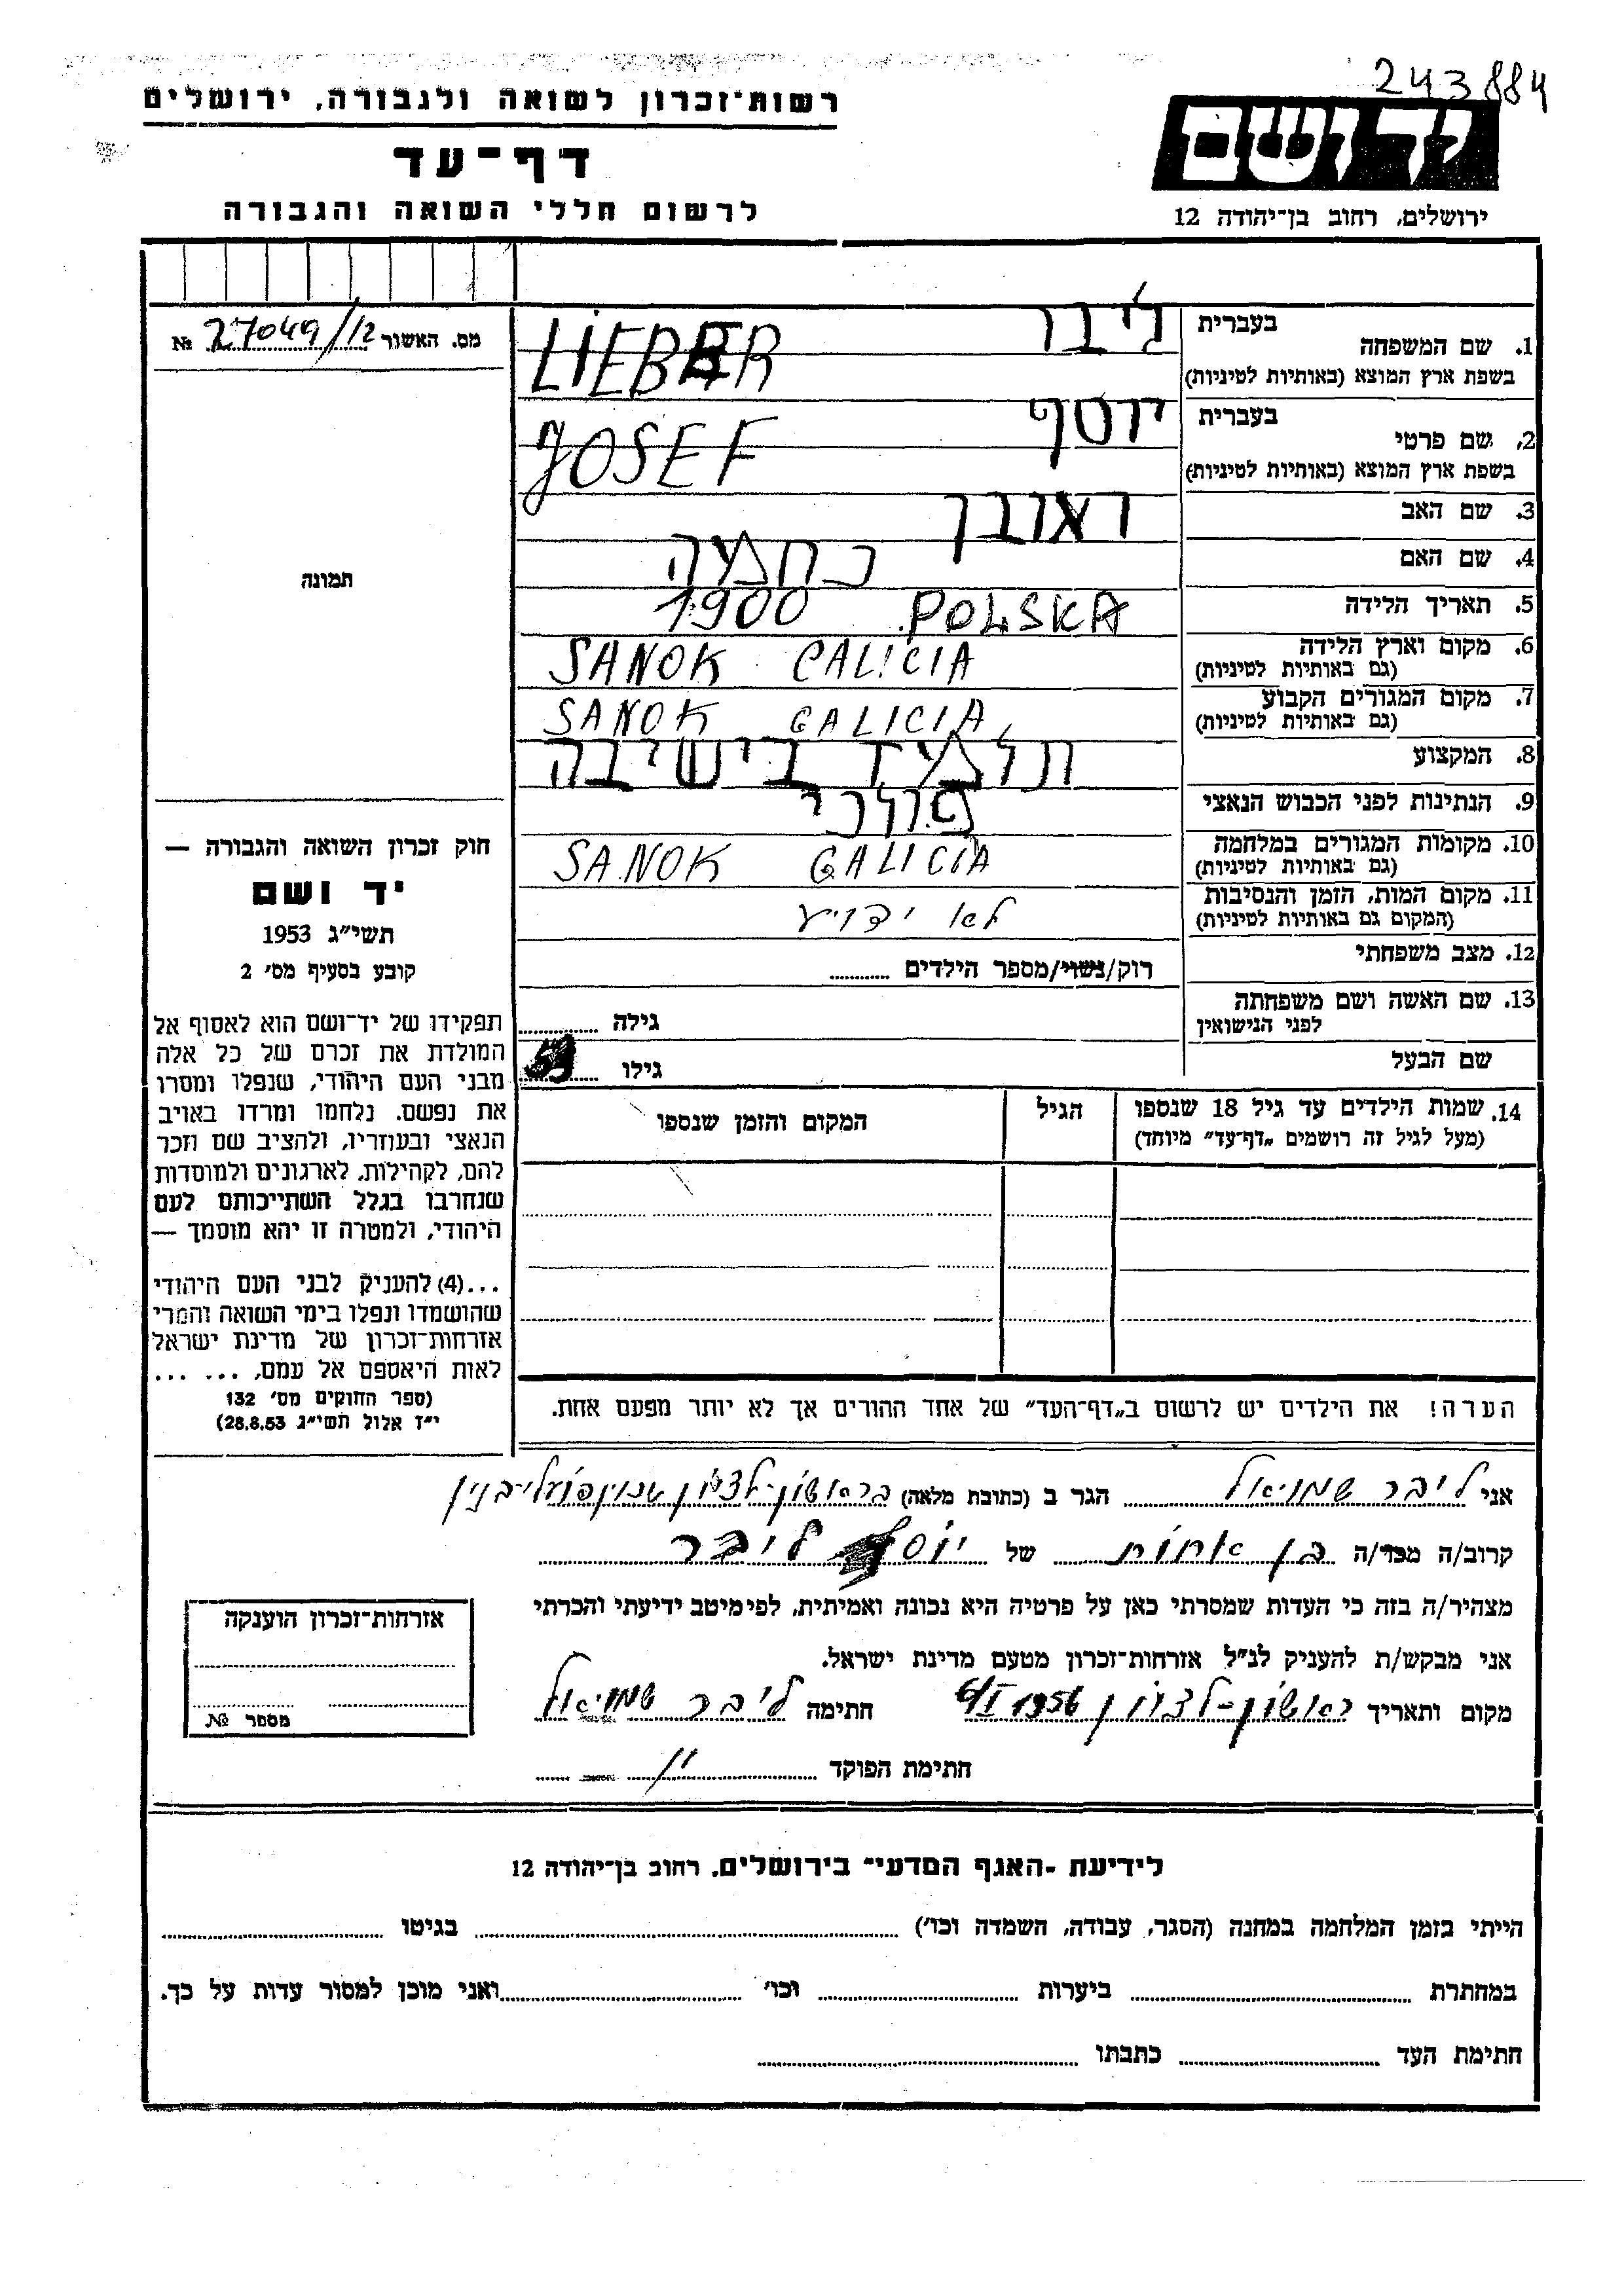 243884
רשות־זכרון לשואה ולגבורה, ירושלים
דף־עד
לרשום חללי השואה והגבורה
יד ושם
ירושלים, רחוב בן־יהודה 12
מס. האשור 27049/12 №
תמונה
חוק זכרון השואה והגבורה —
יד ושם
תשי״ג 1953
קובע בסעיף מס׳ 2
תפקידו של יד־ושם הוא לאסוף אל
המולדת את זכרם של כל אלה
מבני העם היהודי, שנפלו ומסרו
את נפשם. נלחמו ומרדו באויב
הנאצי ובעוזריו, ולהציב שם וזכר
להם, לקהילות, לארגונים ולמוסדות
שנחרבו בגלל השתייכותם לעם
היהודי, ולמטרה זו יהא מוסמך —
...(4) להעניק לבני העם היהודי
שהושמדו ונפלו בימי השואה והמרי
אזרחות־זכרון של מדינת ישראל
לאות היאספם אל עמם, ... ...
(ספר החוקים מס׳ 132
י״ז אלול תשי״ג 28.8.53)
1. שם המשפחה
בעברית ליבר
בשפת ארץ המוצא (באותיות לטיניות) LIEBER
2. שם פרטי
בעברית יוסף
בשפת ארץ המוצא (באותיות לטיניות) JOSEF
3. שם האב ראובן
4. שם האם נחמה
5. תאריך הלידה 1900 POLSKA
6. מקום וארץ הלידה
(גם באותיות לטיניות) SANOK GALICIA
7. מקום המגורים הקבוע
(גם באותיות לטיניות) SANOK GALICIA
8. המקצוע תלמיד בישיבה
9. הנתינות לפני הכבוש הנאצי פולני
10. מקומות המגורים במלחמה
(גם באותיות לטיניות) SANOK GALICIA
11. מקום המות, הזמן והנסיבות
(המקום גם באותיות לטיניות) לא ידוע
12. מצב משפחתי רוק/נשוי/מספר הילדים
13. שם האשה ושם משפחתה
לפני הנישואין גילה
שם הבעל גילו
14. שמות הילדים עד גיל 18 שנספו
(מעל לגיל זה רושמים „דף־עד״ מיוחד)
הגיל
המקום והזמן שנספו
הערה! את הילדים יש לרשום ב„דף־העד״ של אחד ההורים אך לא יותר מפעם אחת.
אני ליבר שמואל הגר ב (כתובת מלאה) בראשון־לציון שכון פועלי־בנין
קרוב/ה מכר/ה בן אחות של יוסף ליבר
מצהיר/ה בזה כי העדות שמסרתי כאן על פרטיה היא נכונה ואמיתית, לפי מיטב ידיעתי והכרתי
אני מבקש/ת להעניק לנ״ל אזרחות־זכרון מטעם מדינת ישראל.
מקום ותאריך ראשון־לציון 6/I 1956 חתימה ליבר שמואל
חתימת הפוקד
אזרחות־זכרון הוענקה
מספר №
לידיעת ־האגף המדעי־ בירושלים, רחוב בן־יהודה 12
הייתי בזמן המלחמה במחנה (הסגר, עבודה, השמדה וכו׳) בגיטו
במחתרת ביערות וכו׳ ואני מוכן למסור עדות על כך.
חתימת העד כתבתו